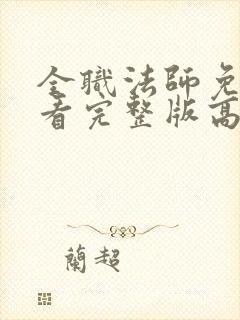 全職法師免
看完整版高
蘭超